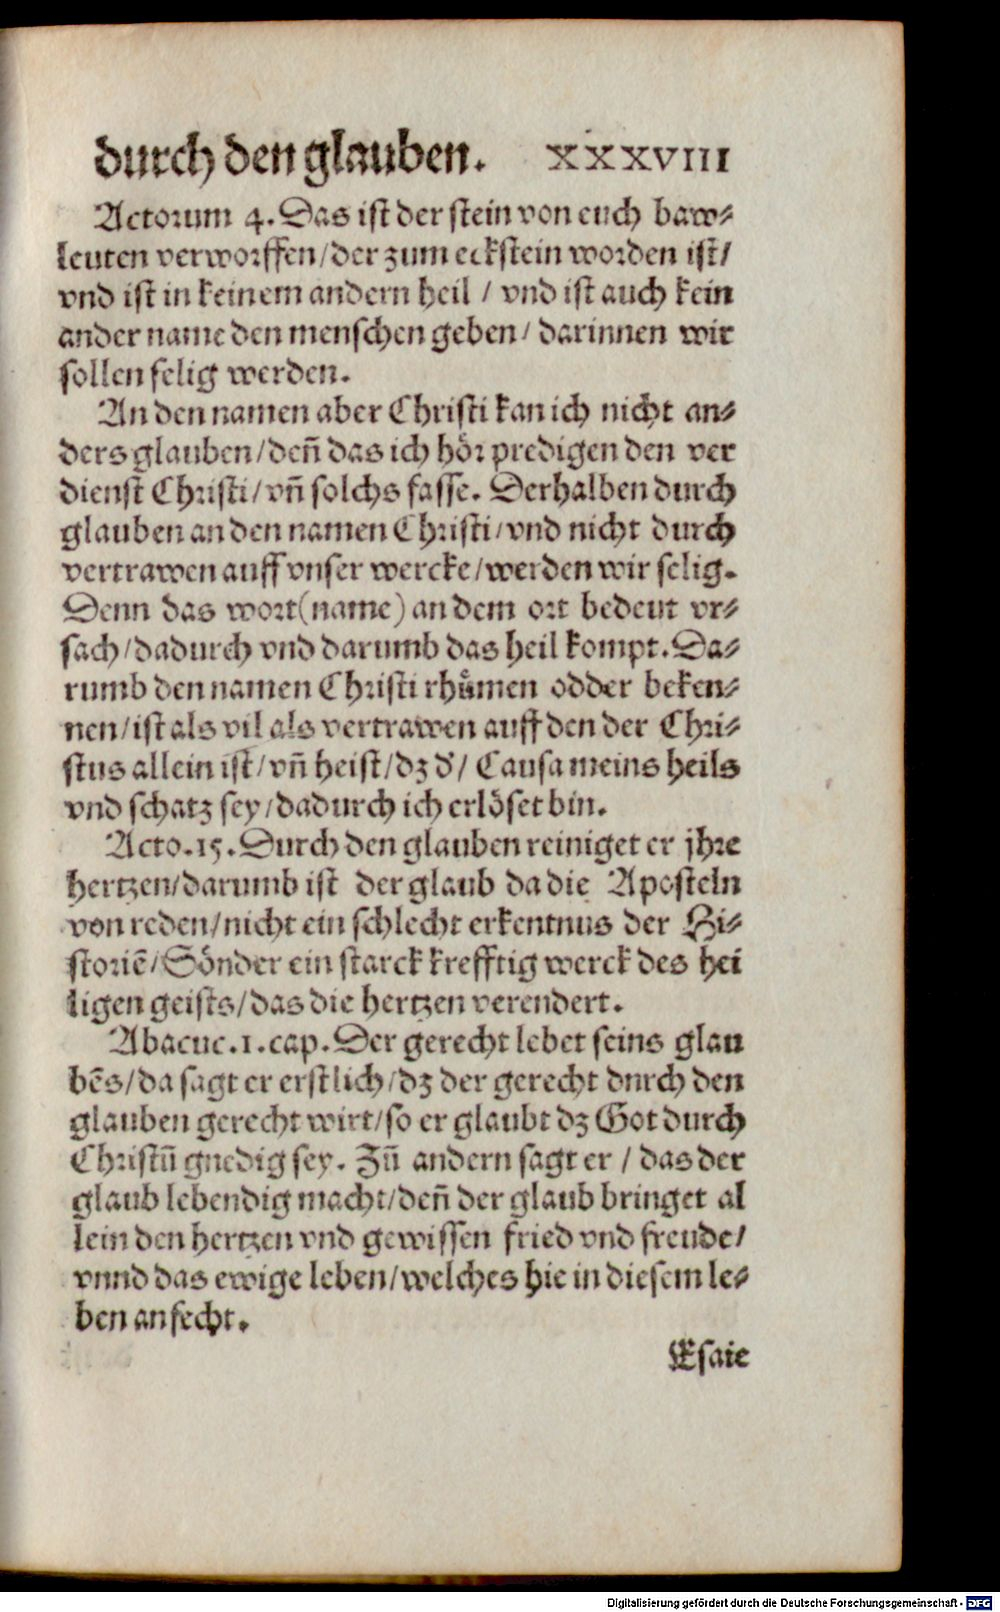 durch den glauben. XXXVIII
Actorum 4. Das ist der stein von euch baw⸗
leuten verworffen/der zum eckstein worden ist/
vnd ist in keinem andern heil / vnd ist auch kein
ander name den menschen geben/ darinnen wir
sollen selig werden.
An den namen aber Christi kan ich nicht an⸗
ders glauben/den̄ das ich hör predigen den ver
dienst Christi/vn̄ solchs fasse. Derhalben durch
glauben an den namen Christi/vnd nicht durch
vertrawen auff vnser wercke/werden wir selig.
Denn das wort(name) an dem ort bedeut vr⸗
sach/dadurch vnd darumb das heil kompt. Da⸗
rumb den namen Christi rhuͤmen odder beken⸗
nen/ist als vil als vertrawen auff den der Chri⸗
stus allein ist/vn̄ heist/dz d'/ Causa meins heils
vnd schatz sey/dadurch ich erlöset bin.
Acto.15. Durch den glauben reiniget er jhre
hertzen/darumb ist der glaub da die Aposteln
von reden/nicht ein schlecht erkentnus der Hi⸗
storiē/Sönder ein starck krefftig werck des hei
ligen geists/das die hertzen verendert.
Abacuc.1.cap. Der gerecht lebet seins glau
bēs/da sagt er erstlich/dz der gerecht dnrch den
glauben gerecht wirt/so er glaubt dz Got durch
Christū gnedig sey. Zū andern sagt er / das der
glaub lebendig macht/den̄ der glaub bringet al
lein den hertzen vnd gewissen fried vnd freude/
vnnd das ewige leben/welches hie in diesem le⸗
ben anfecht.
Esaie
Digitalisierung gefördert durch die Deutsche Forschungsgemeinschaft - DFG